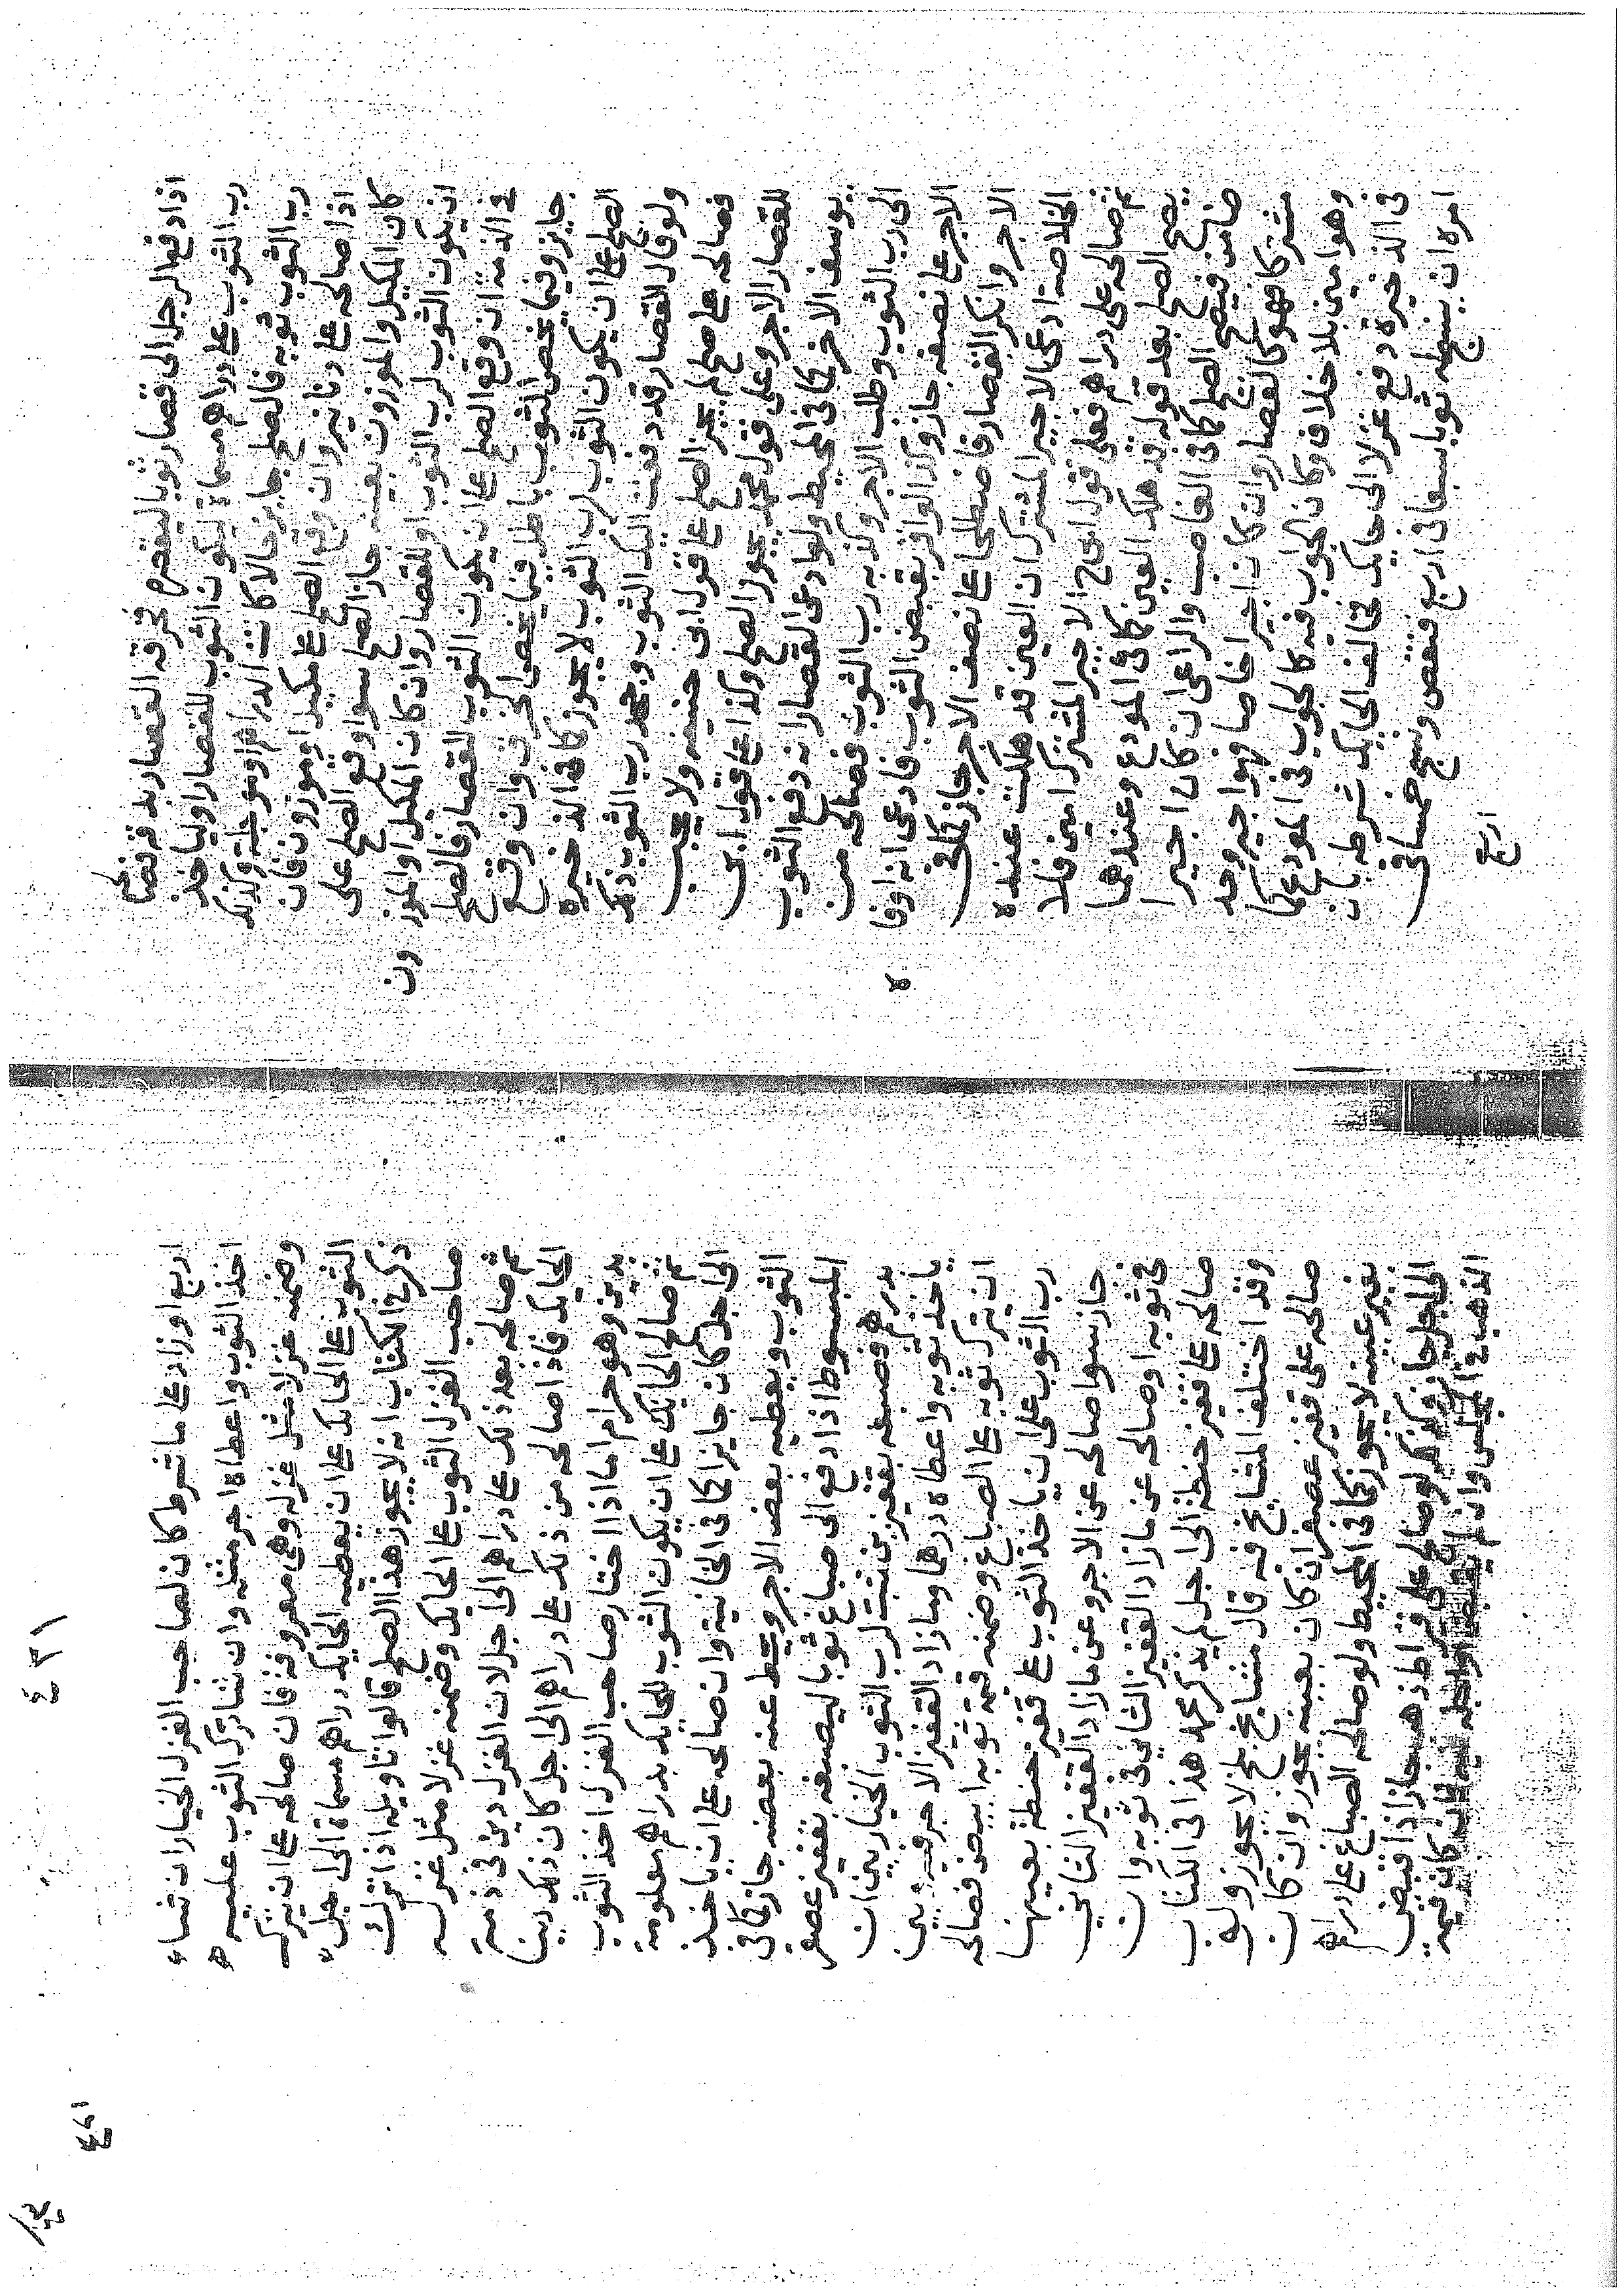 اذا دفع الرجل الى قصار ثوبا ليقصره فخرقه القصار بدقه فصالح
رب الثوب على دراهم مسماة ليكون الثوب للقصار او لياخذ
رب الثوب ثوبه فالصلح جايز حالا كانت الدراهم او موجلة وكذلك
اذا صالحه على دنانير وان وقع الصلح على مكيل او موزون فان
كان المكيل والموزون بعينه جاز الصلح سوا وقع الصلح على
ان يكون الثوب لرب الثوب او للقصار وان كان المكيل او الموزون
في الذمة ان وقع الصلح على ان يكون الثوب للقصار فالصلح
جايز وفيما يخص الثوب باطل فيما يخص الخرق وان وقع
الصلح على ان يكون الثوب لرب الثوب لا يجوز كذا في الذخيرة
ولو قال القصار قد دفعت اليك الثوب وجحد رب الثوب ذلك
فصالحه على صلح لم يجز الصلح على قول ابى حنيفه ولا يجب
للقصار الاجر وعلى قول محمد يجوز الصلح وكذا على قول ابى
يوسف الاخر كذا في المحيط ولو ادعى القصار انه دفع الثوب
الى رب الثوب وطلب الاجر وكذبه رب الثوب فصالحه من
الاجر على نصفه جاز وكذا لو اقر بقبض الثوب فادعى انه اوفاه
الاجر وانكر القصار فاصطلحا على نصف الاجر جاز كذا في
الخلاصة ادعى الاجير المشترك ان العين قد هلكت عنده
ثم صالحه على دراهم فعلى قول ابى ح الاجير المشترك امين فلا
يصح الصلح بعد قوله قد هلك العين كما في المودع وعندهما
ضامن فيصح الصلح كما في الغاصب والراعى ان كان اجيرا
مشتركا فهو كالقصار وان كان اجيرا خاصا فهو اجير وحد
وهو امين بلا خلاف وكان الجواب فيه كالجواب في المودع كذا
في الذخيرة دفع غزلا الى حايك فخالف الحايك شرطه بان
امره ان ينسجه ثوبا سبعا في اربع فنقص ونسج خمسا في
اربع
٤٣١
٤٣١
اربع او زاد على ما شرط كان لصاحب الغزل الخيار ان شاء
اخذ الثوب واعطاه اجر مثله وان شا ترك الثوب عليه
وضمنه غزلا مثل غزله وهى معروفة فان صالحه على ان يترك
الثوب على الحايك على ان يعطيه الحايك دراهم مسماة الى اجل
ذكر في الكتاب انه لا يجوز هذا الصلح قالوا تاويله اذا ترك
صاحب الغزل الثوب على الحايك وضمنه غزلا مثل غزله
ثم صالحه بعد ذلك على دراهم الى اجل لان الغزل دين في ذمة
الحايك فاذا صالحه من ذلك على دراهم الى اجل كان ذلك دينا
بدين وهو حرام اما اذا اختار صاحب الغزل اخذ الثوب
ثم صالح الحايك على ان يكون الثوب للحايك بدراهم معلومة
الى اجل كان جايزا كما في الخانية وان صالحه على ان ياخذ
الثوب ويعطيه بعض الاجر ويحط عنه بعضه جاز كما في
المبسوط اذا دفع الى صباغ ثوبا ليصبغه بقفيز عصفر
بدرهم وصبغه بقفيزين ثبت لرب الثوب الخيار بين ان
ياخذ ثوبه واعطاه درهما وما زاد القفيز الاخر فيه وبين
ان يترك ثوبه على الصباغ وضمنه قيمة ثوبه ابيض فصالحه
رب الثوب على ان ياخذ الثوب على قفيز حنطة بعينها
جاز سوا صالحه عن الاجر وعن ما زاد القفيز الثاني
في ثوبه او صالحه عن ما زاد القفيز الثاني في ثوبه وان
صالحه على قفيز حنطة الى اجل لم يذكر محمد هذا في الكتاب
وقد اختلف المشايخ فيه قال مشايخ بلخ لا يجوز ولو
صالحه على قفيز عصفر ان كان بعينه يجوز وان كان
بغير عينه لا يجوز كذا في المحيط ولو صالحه الصباغ على دراهم
الى اجل جاز وكذلك لو صالحه على قيراط ذهب جاز اذا قبض
الذهب في المجلس وان لم